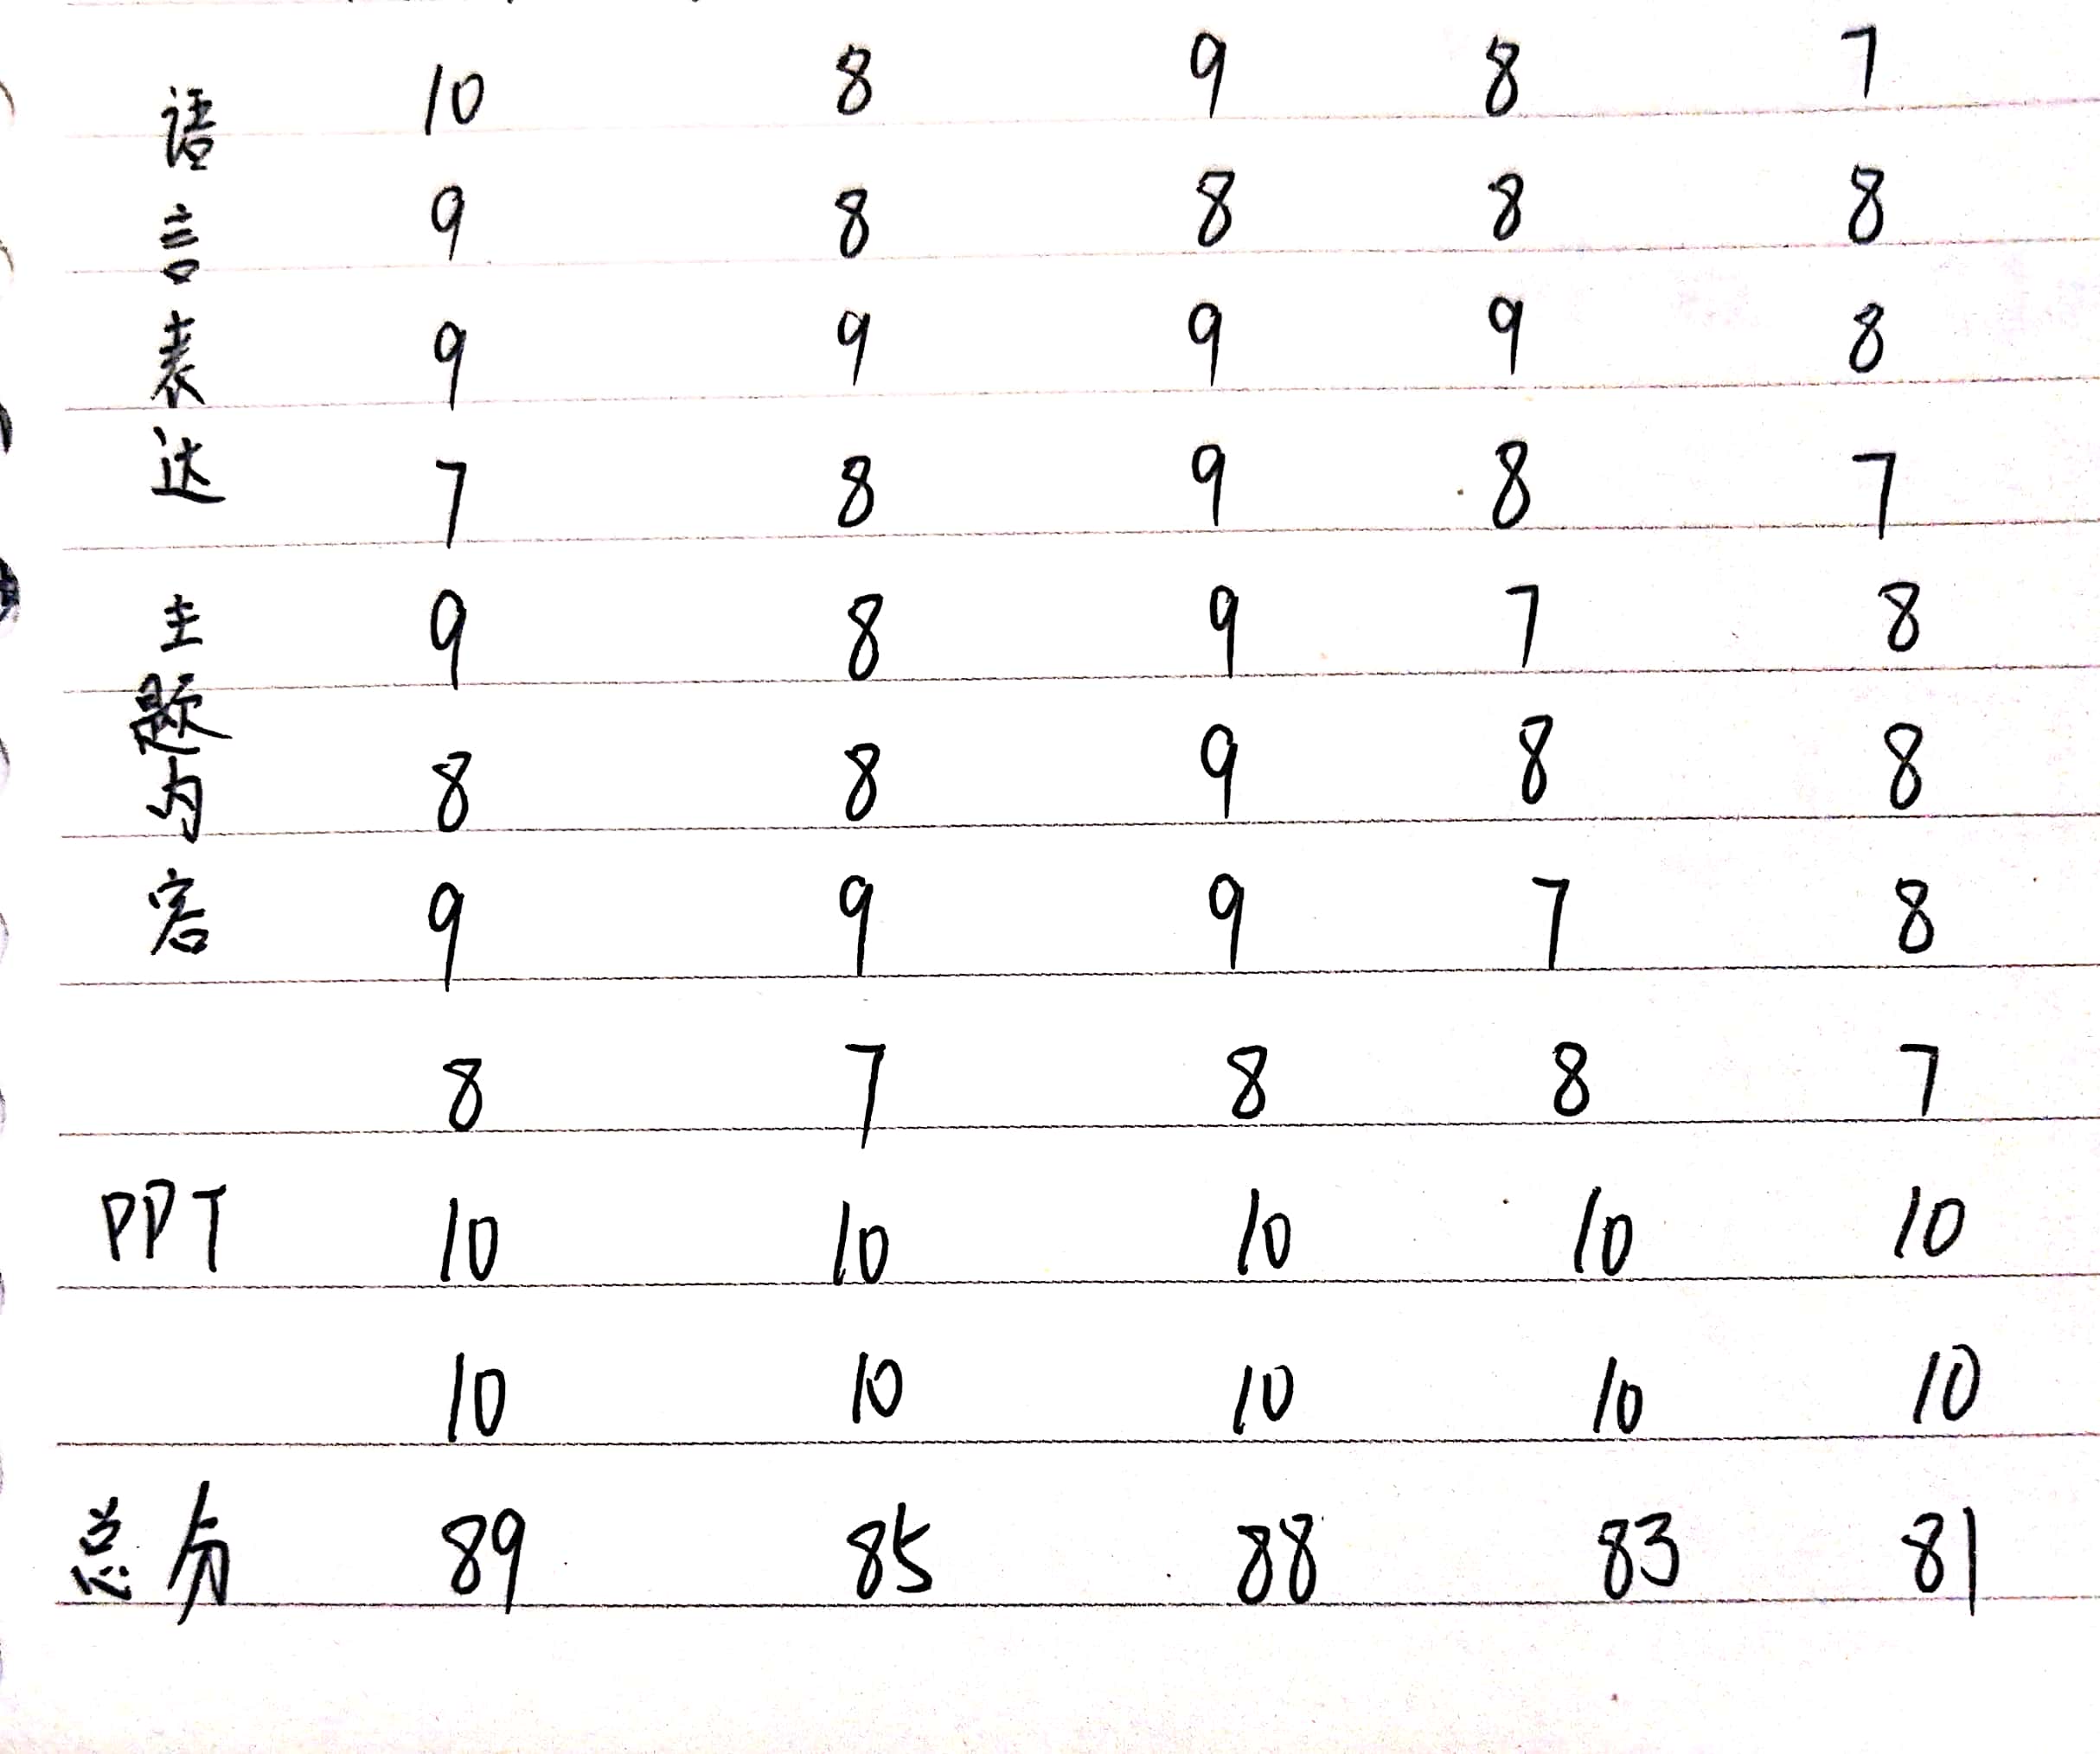 语言表达 10 8 9 8 7
9 8 8 8 8
9 9 9 9 8
7 8 9 8 7
主题内容 9 8 9 7 8
8 8 9 8 8
9 9 9 7 8
8 7 8 8 7
PPT 10 10 10 10 10
10 10 10 10 10
总分 89 85 88 83 81